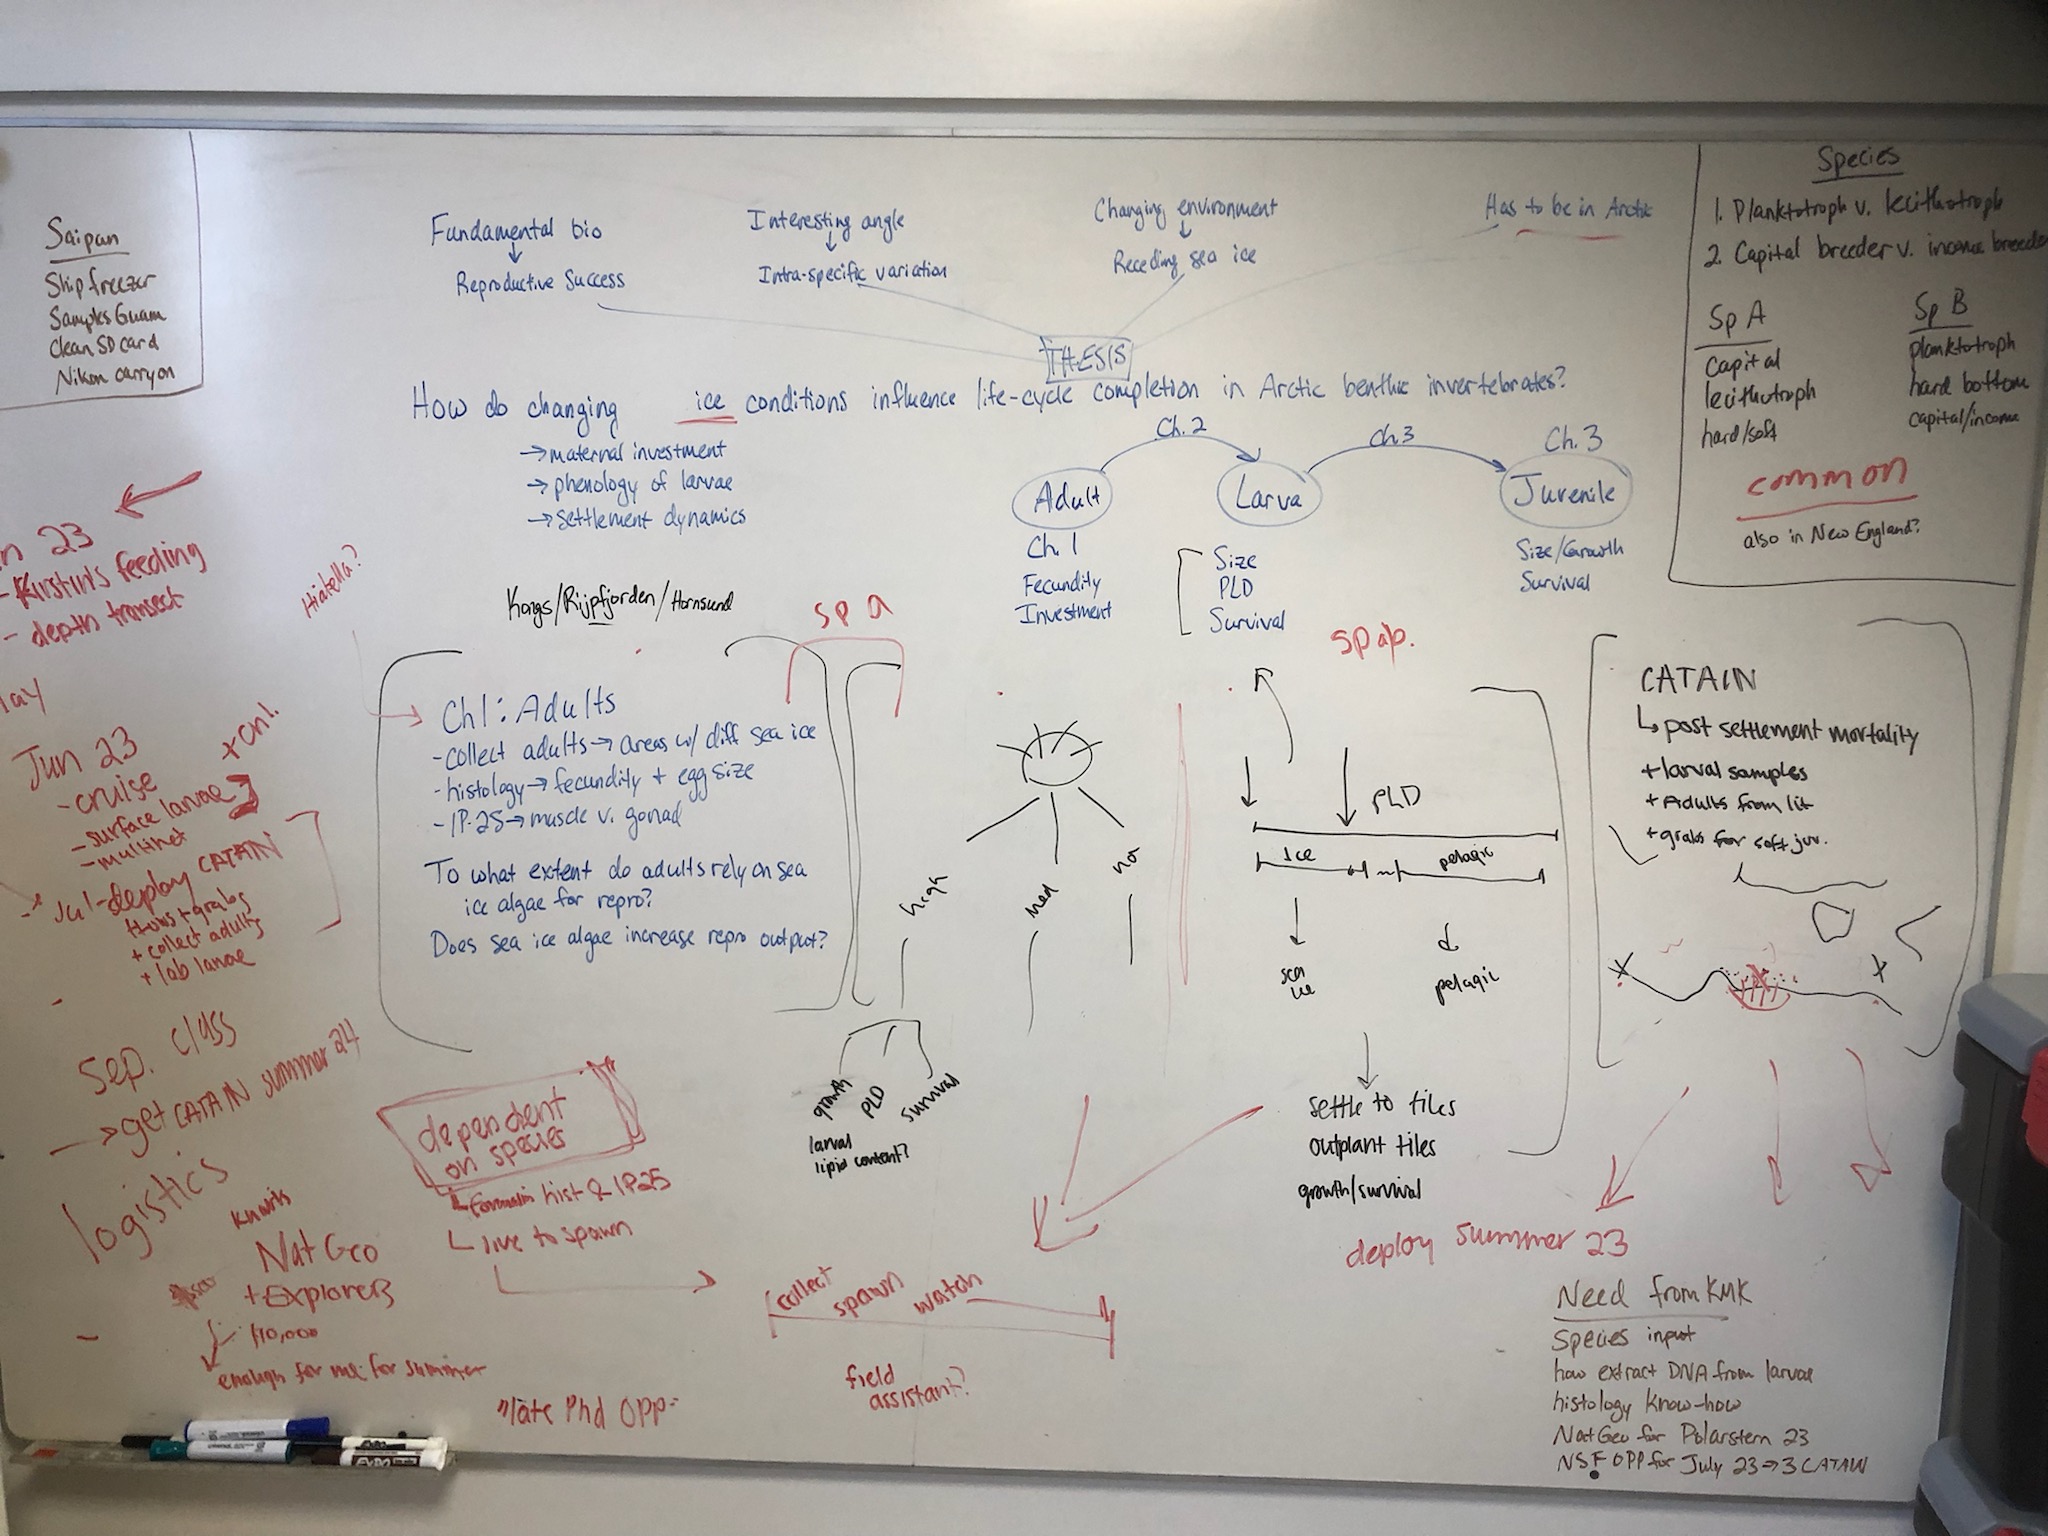 Saipan
Ship freezer
Samples Guam
Clean SD card
Nikon carryon
Fundamental bio
Reproductive Success
Interesting angle
Intra-specific variation
Changing environment
Receding sea ice
Has to be in Arctic
THESIS
How do changing ice conditions influence life-cycle completion in Arctic benthic invertebrates?
→maternal investment
→phenology of larvae
→settlement dynamics
Ch. 2
Ch.3
Ch. 3
Adult
Larva
Juvenile
Ch. 1
Fecundity
Investment
Size
PLD
Survival
Size/Growth
Survival
Species
1. Planktotroph v. lecithotroph
2. Capital breeder v. income breeder
Sp A
capital
lecithotroph
hard/soft
Sp B
planktotroph
hard bottom
capital/income
common
also in New England?
23
- Kirstin's feeding
- depth transect
Hiatella?
Jun 23
-cruise
-surface larvae
-multinet
Jul-deploy CATAIN
+ grabs
+ collect adults
+ lab larvae
Sep. class
→get CATAIN summer 24
logistics
Nat Geo
+Explorers
$10,000
enough for me for summer
Kongs/Rijpfjorden/Hornsund
sp a
Ch1: Adults
-collect adults→areas w/ diff sea ice
-histology→fecundity + egg size
-IP-25→muscle v. gonad
To what extent do adults rely on sea
ice algae for repro?
Does sea ice algae increase repro output?
high
med
no
growth
PLD
survival
larval
lipid content?
sp ab.
PLD
ice
pelagic
sea
ice
pelagic
settle to tiles
outplant tiles
growth/survival
CATAIN
post settlement mortality
+larval samples
+Adults from lit
+grabs for soft juv.
dependent
on species
formalin hist & IP25
live to spawn
collect spawn watch
field
assistant?
"late Phd OPP"
deploy summer 23
Need from KMK
Species input
how extract DNA from larvae
histology know-how
NatGeo for Polarstern 23
NSF OPP for July 23→3 CATAIN